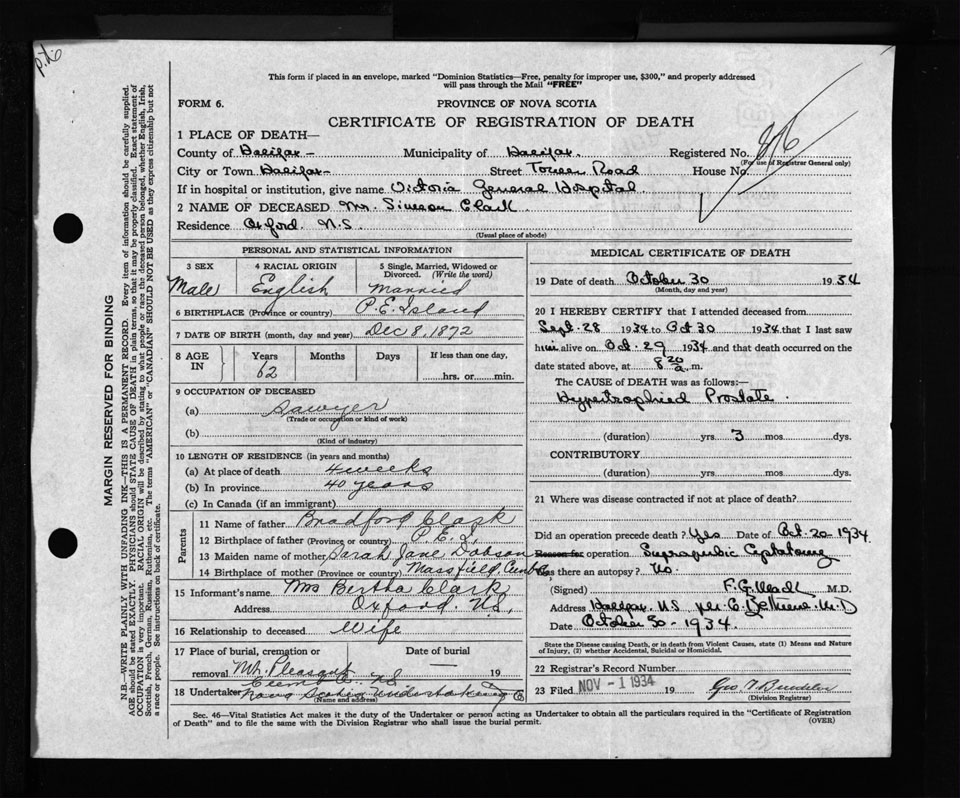 This form if placed in an envelope, marked "Dominion Statistics—Free, penalty for improper use, $300," and properly addressed
will pass through the Mail "FREE"
FORM 6. PROVINCE OF NOVA SCOTIA
CERTIFICATE OF REGISTRATION OF DEATH
1 PLACE OF DEATH—
County of Halifax - Municipality of Halifax. Registered No.
(For use of Registrar General only)
City or Town Halifax - Street Tower Road House No.
If in hospital or institution, give name Victoria General Hospital
2 NAME OF DECEASED Mr. Simeon Clark.
Residence Oxford. N.S.
(Usual place of abode)
PERSONAL AND STATISTICAL INFORMATION
3 SEX Male
4 RACIAL ORIGIN English
5 Single, Married, Widowed or Divorced. (Write the word) Married
6 BIRTHPLACE (Province or country) P.E. Island
7 DATE OF BIRTH (month, day and year) Dec 8, 1872
8 AGE IN Years 62 Months Days If less than one day, hrs. or min.
9 OCCUPATION OF DECEASED
(a) Sawyer
(Trade or occupation or kind of work)
(b)
(Kind of industry)
10 LENGTH OF RESIDENCE (in years and months)
(a) At place of death 4 weeks
(b) In province 40 years
(c) In Canada (if an immigrant)
Parents
11 Name of father Bradford Clark
12 Birthplace of father (Province or country) P.E.I.
13 Maiden name of mother Sarah Jane Dobson
14 Birthplace of mother (Province or country)
15 Informant's name Mrs Bertha Clark
Address Oxford. N.S.
16 Relationship to deceased Wife
17 Place of burial, cremation or removal Mt. Pleasant
Date of burial — 19
18 Undertaker Nova Scotia Undertaking Co
(Name and address)
MEDICAL CERTIFICATE OF DEATH
19 Date of death October 30 1934
(Month, day and year)
20 I HEREBY CERTIFY that I attended deceased from
Sept. 28 1934 to Oct 30 1934 that I last saw
him alive on Oct. 29 1934 and that death occurred on the
date stated above, at 8 20 a.m.
The CAUSE OF DEATH was as follows:—
Hypertrophied Prostate.
(duration) yrs 3 mos dys.
CONTRIBUTORY
(duration) yrs. mos. dys.
21 Where was disease contracted if not at place of death?
Did an operation precede death? Yes Date of Oct. 20 - 1934.
Reason for operation Suprapubic
Was there an autopsy? No.
(Signed) M.D.
Address Halifax. N.S. per M.D
Date October 30 - 1934.
State the Disease causing Death, or in death from Violent Causes, state (1) Means and Nature
of Injury, (2) whether Accidental, Suicidal or Homicidal.
22 Registrar's Record Number
23 Filed NOV - 1 1934 19
(Division Registrar)
Sec. 46—Vital Statistics Act makes it the duty of the Undertaker or person acting as Undertaker to obtain all the particulars required in the "Certificate of Registration
of Death" and to file the same with the Division Registrar who shall issue the burial permit. (OVER)
MARGIN RESERVED FOR BINDING
N.B.—WRITE PLAINLY WITH UNFADING INK—THIS IS A PERMANENT RECORD. Every item of information should be carefully supplied.
AGE should be stated EXACTLY. PHYSICIANS should STATE CAUSE OF DEATH in plain terms, so that it may be properly classified. Exact statement of
OCCUPATION is very important. RACIAL ORIGIN will be described by stating to what people or race the deceased person belonged, whether English, Irish,
Scottish, French, German, Russian, Ruthenian, etc. The terms "AMERICAN" or "CANADIAN" SHOULD NOT BE USED as they express citizenship but not
a race or people. See instructions on back of certificate.